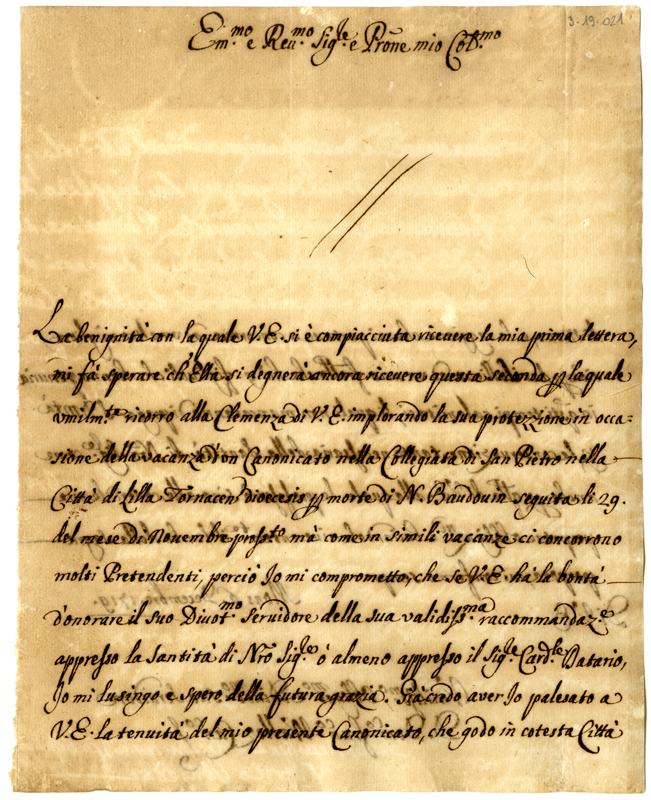 3-19-021
Em.mo e Reu.mo Sig.re e Prōne mio Col.mo
La benignità con la quale V. E. si è compiacciuta ricevere la mia prima lettera,
mi fà sperare ch'Ella si degnerà ancora ricevere questa seconda ꝑ la quale
vmilm.te ricorro alla Clemenza di V. E. implorando la sua protezzione in occa=
sione della vacanza d'on Canonicato nella Collegiata di San Pietro nella
Città di Lilla Tornacen diœcesis ꝑ morte di N. Baudouin seguita li 29.
del mese di Novembre pross.to mà come in simili vacanze ci concorrono
molti Pretendenti, perciò Io mi comprometto, che se V. E. hà la bontà
d'onorare il suo Diuot.mo Seruidore della sua validiss.ma raccommandaz.e
appresso la Santità di Nrō Sig.re ò almeno appresso il Sig.re Card.le Datario,
Io mi lusingo e spero della futura grazia. Già credo aver Io palesato a
V. E. la tenuita del mio presente Canonicato, che godo in cotesta Città